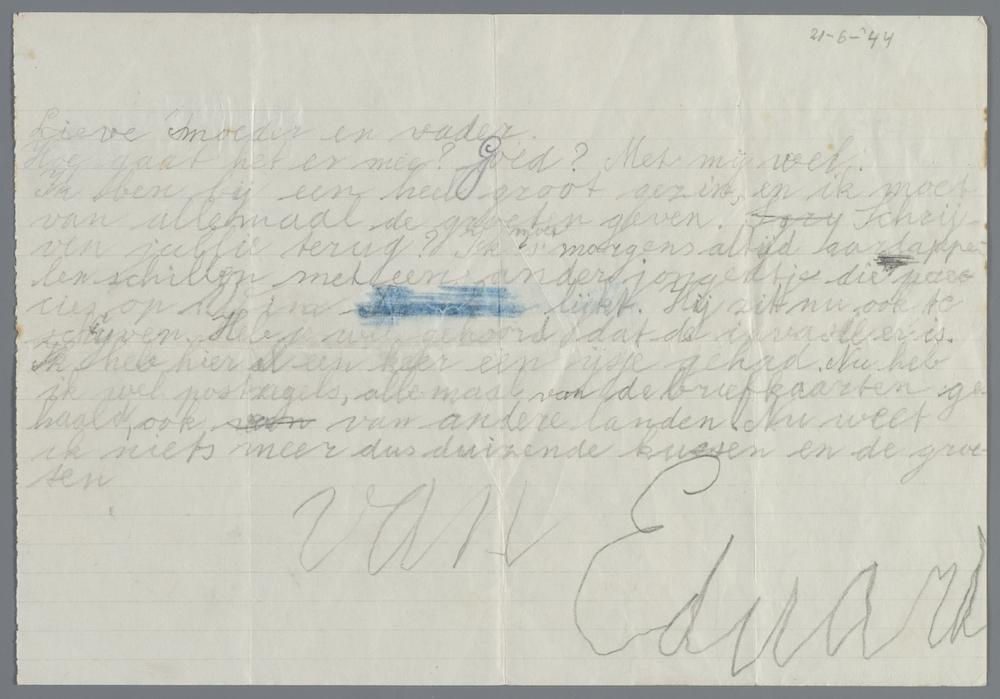 21-6-'44
Lieve moeder en vader.
Hoe gaat het er mee? Goed? Met mij wel.
Ik ben bij een heel groot gezin, en ik moet
van allemaal de groeten geven. Schrij-
ven jullie terug? Ik moet 's morgens altijd aartappe-
len schillen met een ander jongetje die
cies op lijkt. Hij zit nu ook te
schrijven. Heb je wel gehoord dat de invasie er is.
Ik heb hier al een keer een ijsje gehad. Nu heb
ik wel postzegels, allemaal van de briefkaarten ge-
haald, ook van andere landen. Nu weet
ik niets meer dus duizende kussen en de groe-
ten
van
Eduard